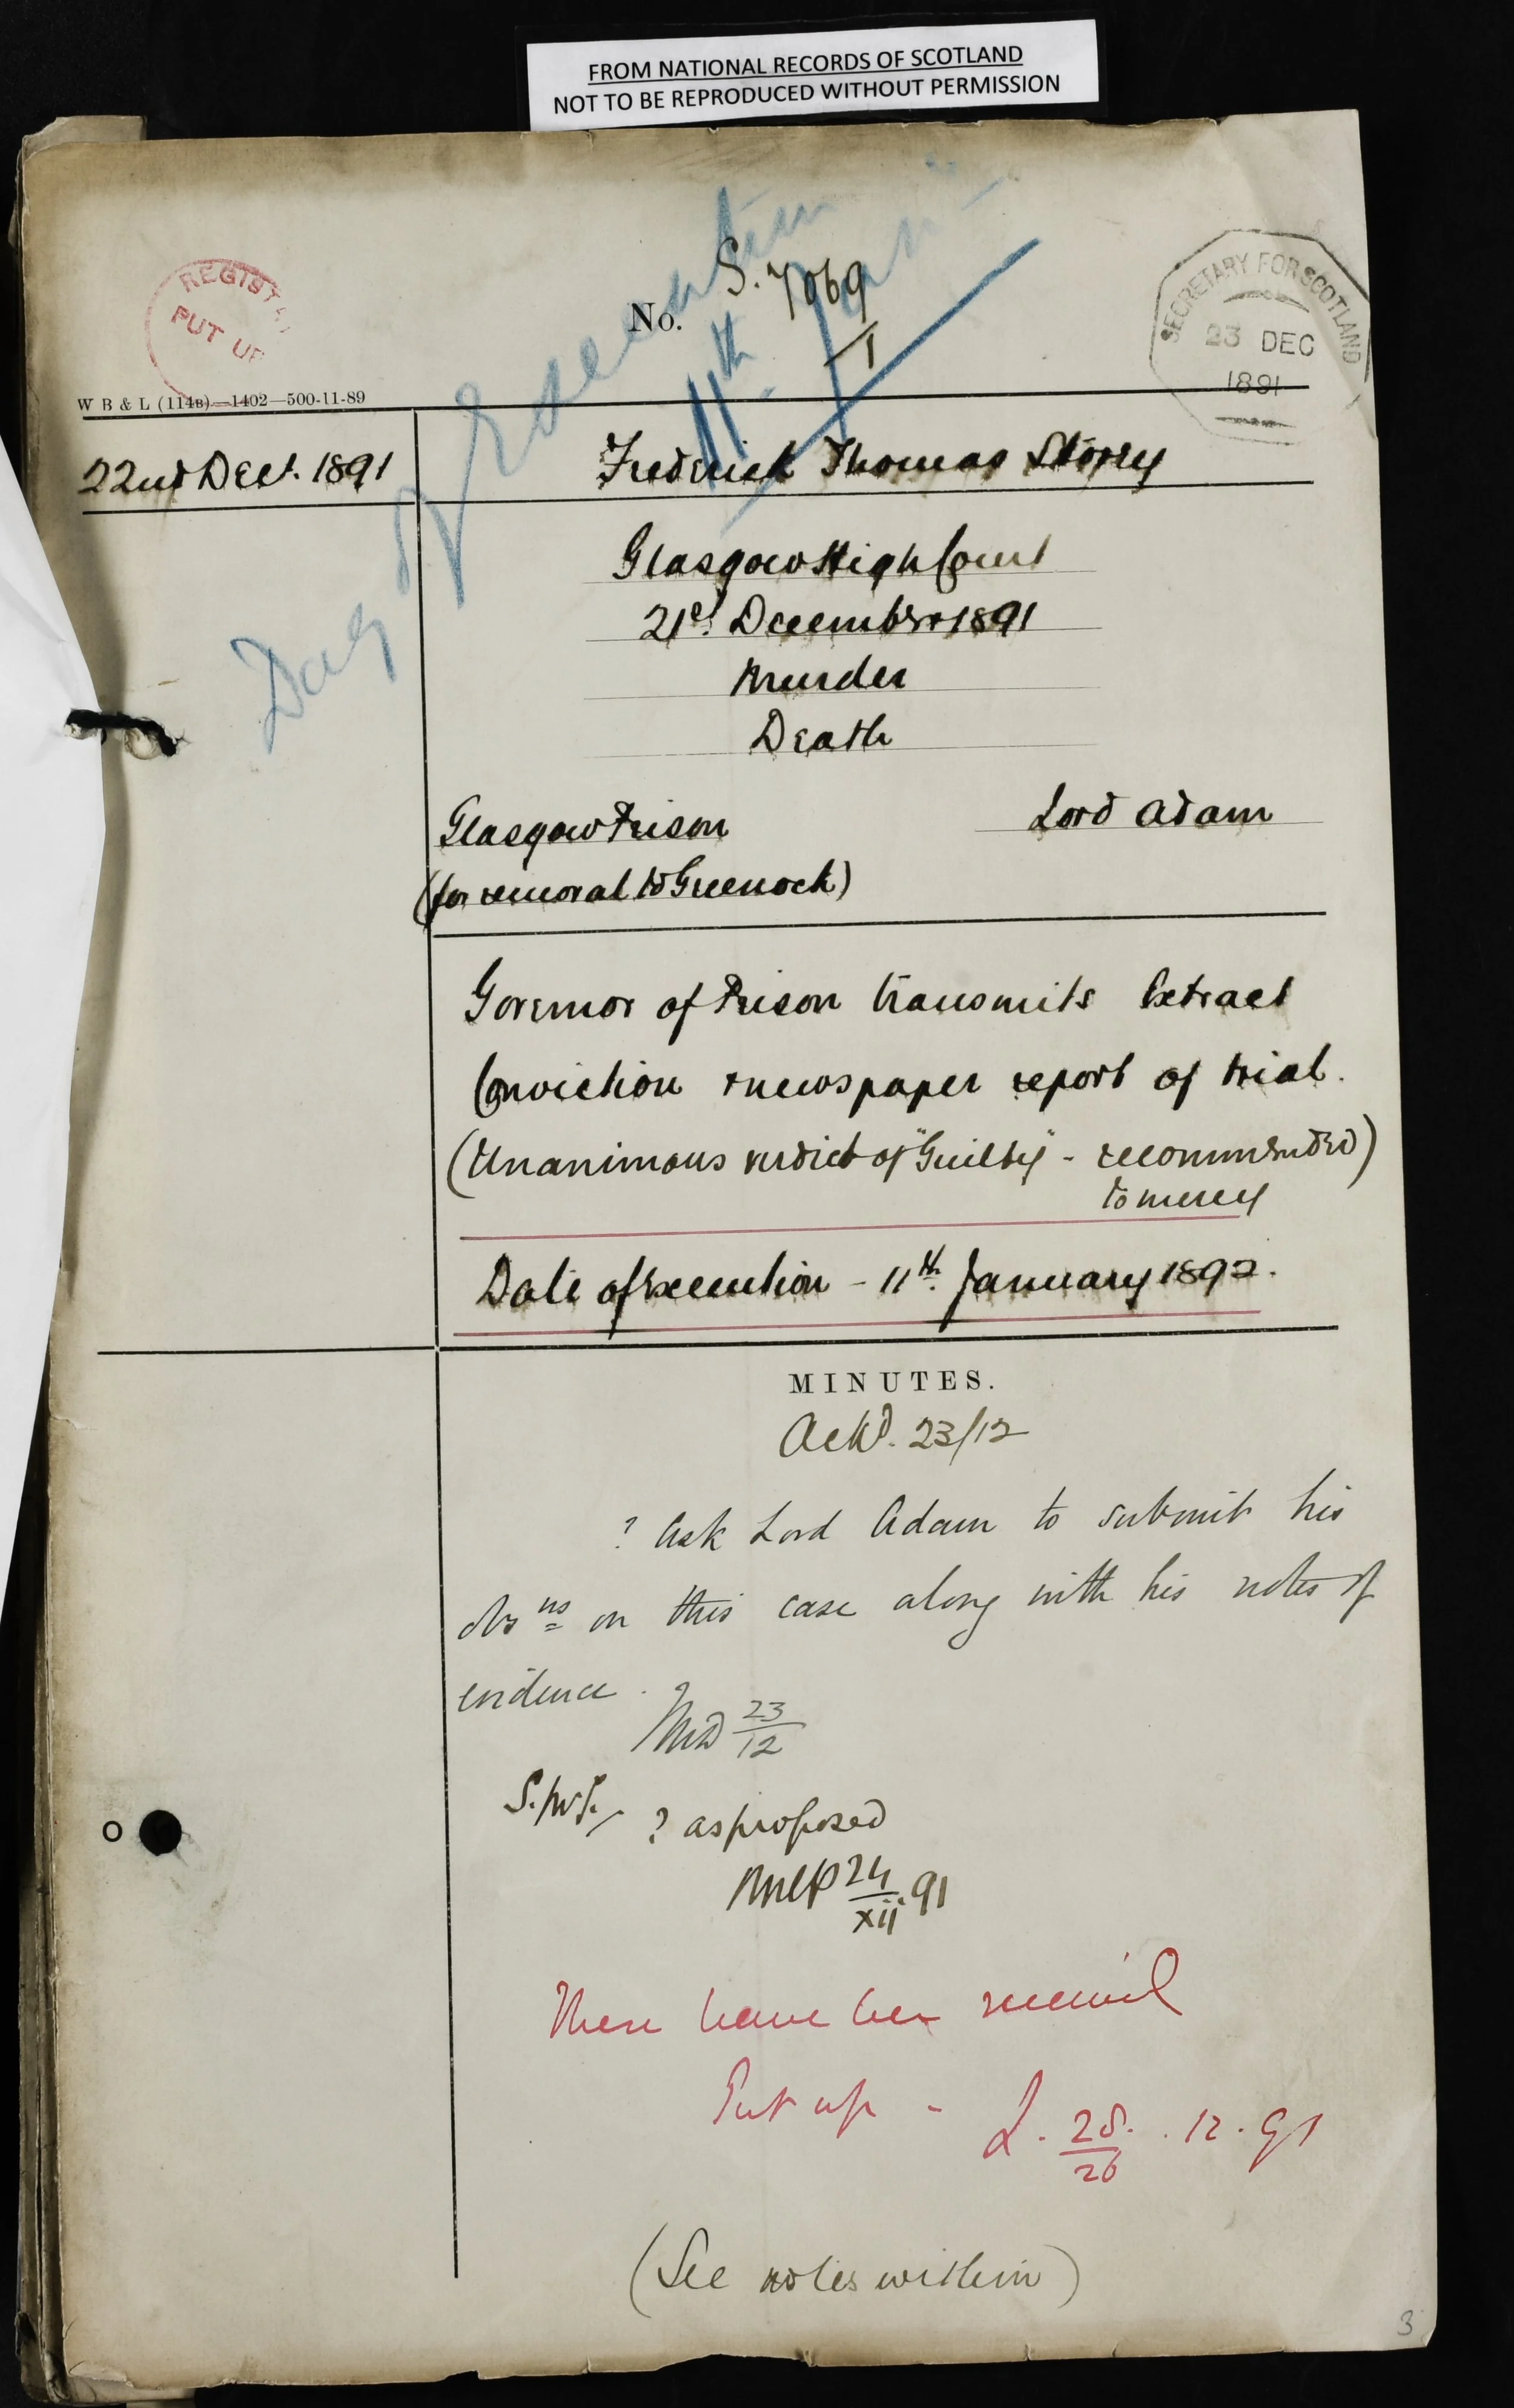 FROM NATIONAL RECORDS OF SCOTLAND
NOT TO BE REPRODUCED WITHOUT PERMISSION
REGISTRY
PUT UP
No. S. 7069/1
SECRETARY FOR SCOTLAND
23 DEC
1891
Day of Execution
11th Jany
W B & L (114B)—1402—500-11-89
22nd Decr. 1891
Frederick Thomas Storey
Glasgow High Court
21st December 1891
Murder
Death
Glasgow Prison
Lord Adam
(for removal to Greenock)
Governor of Prison transmits Extract
Conviction & newspaper report of trial.
(Unanimous verdict of "Guilty" - recommended)
to mercy
Date of Execution - 11th January 1892.
MINUTES.
Ackd. 23/12
? Ask Lord Adam to submit his
obsns on this case along with his notes of
evidence. ?
23/12
? as proposed
24/xii.91
These have been received
Put up - L. 28/26 . 12 . 91
(See notes within)
3